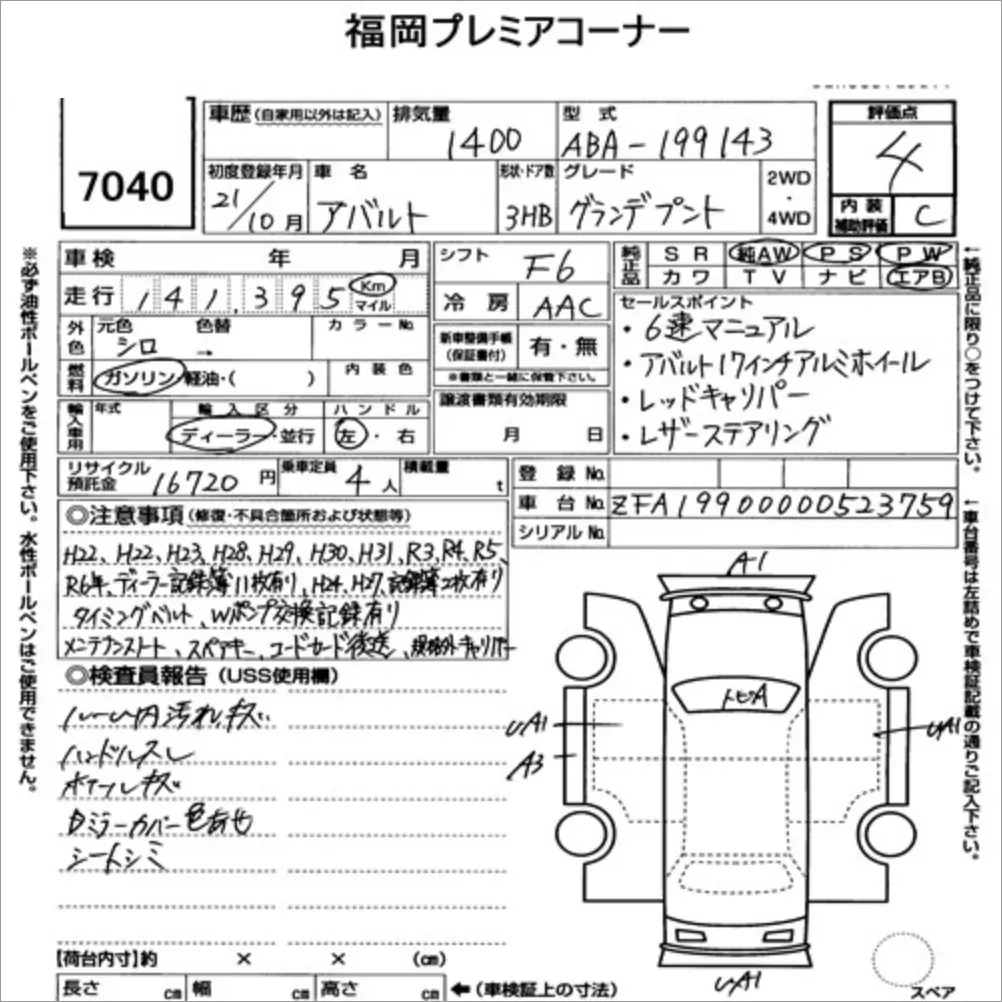 福岡プレミアコーナー
7040
車歴(自家用以外は記入)
排気量
1400
型 式
ABA-199143
評価点
4
初度登録年月
21/10月
車 名
アバルト
形状・ドア数
3HB
グレード
グランデプント
2WD
・
4WD
内 装
補助評価
C
車検 年 月
シフト
F6
純正品
SR 純AW PS PW
カワ TV ナビ エアB
走行 141,395 Km
マイル
冷 房
AAC
セールスポイント
・6速マニュアル
・アバルト17インチアルミホイール
・レッドキャリパー
・レザーステアリング
外色
元色 色替
シロ →
カラーNo.
新車整備手帳
(保証書付)
有・無
※書類と一緒に保管下さい。
燃料
ガソリン 軽油・( )
内 装 色
譲渡書類有効期限
月 日
輸入車用
年式
輸 入 区 分
ディーラー・並行
ハ ン ド ル
左・右
リサイクル
預託金
16720円
乗車定員
4人
積載量
t
登 録 No.
車 台 No.
ZFA19900000523759
シリアル No.
◎注意事項(修復・不具合箇所および状態等)
H22、H22、H23、H28、H29、H30、H31、R3、R4、R5、
R6年、ディーラー記録簿11枚有り、H24、H27、記録簿2枚有り
タイミングベルト、Wポンプ交換記録有り
メンテナンスノート、スペアキー、コードカード後送、規格外キャリパー
◎検査員報告(USS使用欄)
内汚れキズ
ハンドルスレ
ホイールキズ
ミラーカバー色あせ
シートシミ
A1
トビA
A1
A3
A1
A1
スペア
【荷台内寸】約 × × (cm)
長さ cm 幅 cm 高さ cm
←(車検証上の寸法)
※必ず油性ボールペンをご使用下さい。水性ボールペンはご使用できません。
←純正品に限り○をつけて下さい。
←車台番号は左詰めで車検証記載の通りご記入下さい。